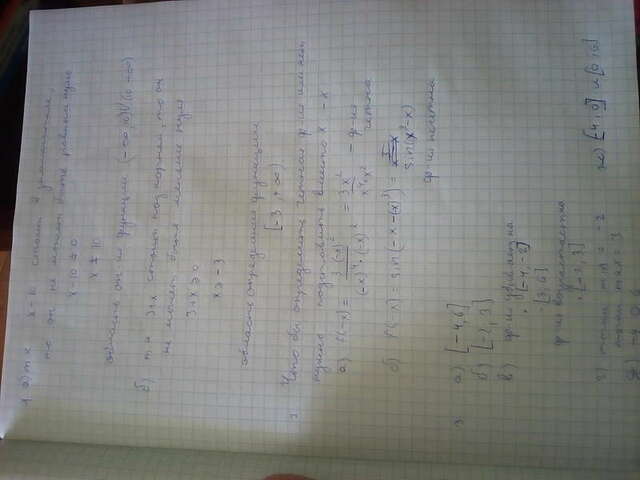 1. а) т.к. x-10 стоит в знаменателе,
то он не может быть равным нулю
x-10 ≠ 0
x ≠ 10
область оп-ия функции (-∞, 10)∪(10 -∞)
б) т.к. 3+x стоит под корнем, то он
не может быть меньше нуля
3+x ≥ 0
x ≥ -3
область определения функции
[-3, +∞)
Что бы определить четная ф-ия или нет
нужно подставить вместо x -x
а) f(-x) = 3(-x)² / (-x)⁴·(-x)² = 3x² / x⁴·x² - ф-ия
четна
б) f(-x) = sin(-x-(-x)³) =
sin(x³-x)
ф-ия нечетна
3. а) [-4,6]
б) [-2, 3]
в) ф-ия убывает на
[-4, -2]
[3, 6]
ф-ия возрастает на
[-2, 3]
г) точки min = -2
точки max = 3
ж) [-4, 0] и [0, 6]